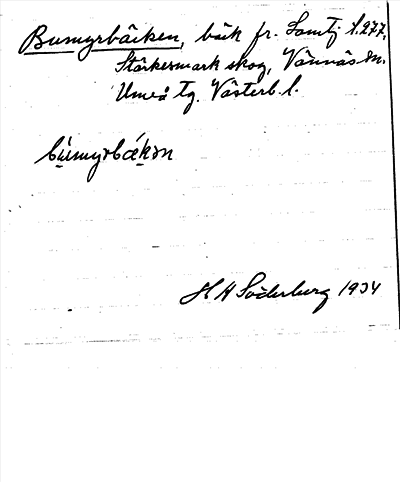 Bumyrbäcken, bäck fr. Lomtj 1.277,
Stärkesmark skog, Vännäs sn.
Umeå tg. Västerb. l.
bu̱myrbäkən
H H Söderburg 1934